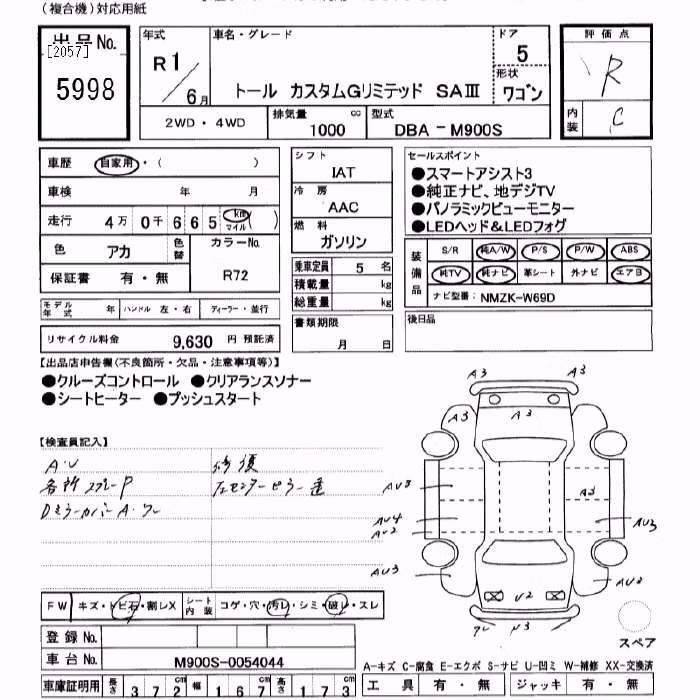 (複合機)対応用紙
出品No.
[2057]
5998
年式
R1/6月
車名・グレード
トール カスタムGリミテッド SAⅢ
ドア
5
形状
ワゴン
評価点
R
内装
C
2WD・4WD
排気量 cc
1000
型式
DBA-M900S
車歴 自家用・( )
車検 年 月
走行 4万 0千 6 6 5 km マイル ( )
色 アカ
色替
カラーNo.
R72
保証書 有・無
モデル年式 年 ハンドル 左・右 ディーラー・並行
リサイクル料金 9,630 円 預託済
シフト
IAT
冷房
AAC
燃料
ガソリン
乗車定員 5 名
積載量 kg
総重量 kg
書類期限
月 日
セールスポイント
●スマートアシスト3
●純正ナビ、地デジTV
●パノラミックビューモニター
●LEDヘッド&LEDフォグ
装備品
S/R 純A/W P/S P/W ABS
純TV 純ナビ 革シート 外ナビ エアB
ナビ型番: NMZK-W69D
後日品
【出品店申告欄(不良箇所・欠品・注意事項等)】
●クルーズコントロール ●クリアランスソナー
●シートヒーター ●プッシュスタート
【検査員記入】
A・U
各所 スプレーP
Dミラーカバー A・ワレ
修復
左センターピラー 歪
A3 A3
A3 A3
AU3
A3
AU4
AU2
AU3
AU3
AU2
U2
スペア
FW キズ・トビ石・割レX
シート内装 コゲ・穴・汚レ・シミ・破レ・スレ
登録No.
車台No. M900S-0054044
車庫証明用 長さ 3 7 2 cm 幅 1 6 7 cm 高さ 1 7 3 cm
A-キズ C-腐食 E-エクボ S-サビ U-凹ミ W-補修 XX-交換済
工具 有・無 ジャッキ 有・無